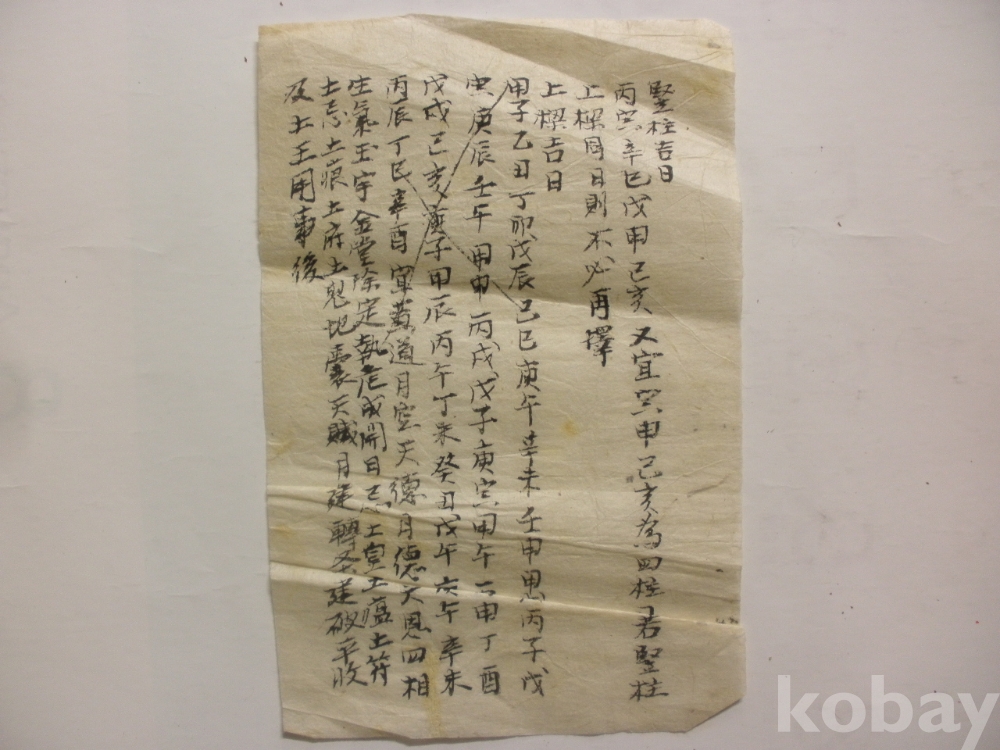 竪柱吉日
丙寅辛巳戊申己亥又宜寅申己亥為四柱若竪柱
上樑同日則不必再擇
上樑吉日
甲子乙丑丁卯戊辰己巳庚午辛未壬申甲 丙子戊
庚辰壬午甲申丙戌戊子庚寅甲午 申丁酉
戊戌己亥庚子甲辰丙午丁未癸丑戊午 午辛未
丙辰丁巳辛酉宜黃道月空天德月德天恩四相
生氣玉宇金堂除定執危成開日忌土 土瘟土符
土忌土痕土府土 地囊天賊月建轉 建破平收
及土王用事後
kobay